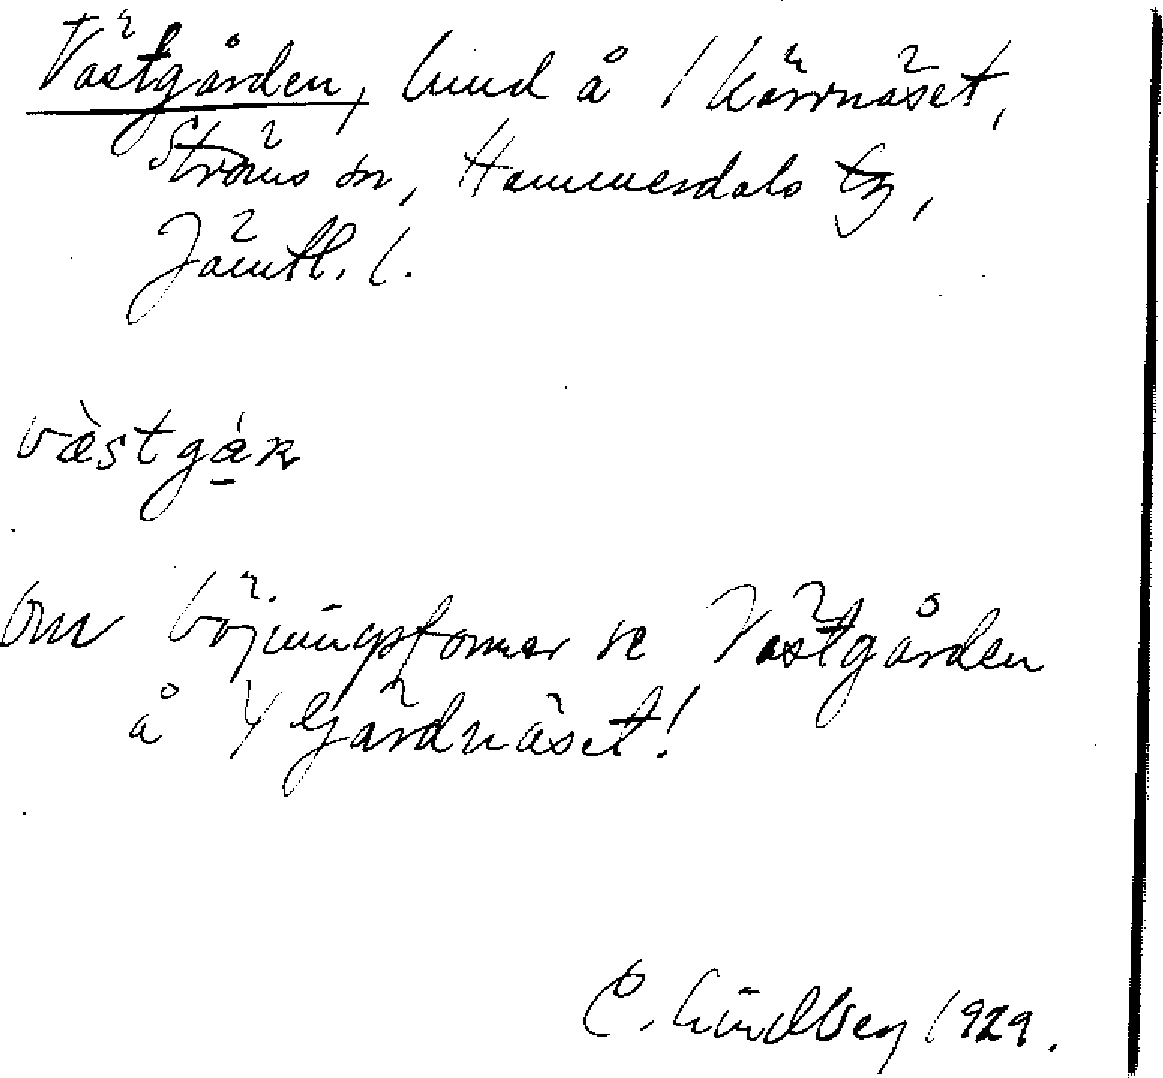 Västgården, hmd å 1 Kärrnäset,
Ströms sn, Hammerdals tg,
Jämtl. l.
væ̀stgá̱ṇ
Om böjningsformer se Västgården
å 4 Gärdnäset!
C. Lindberg 1929.